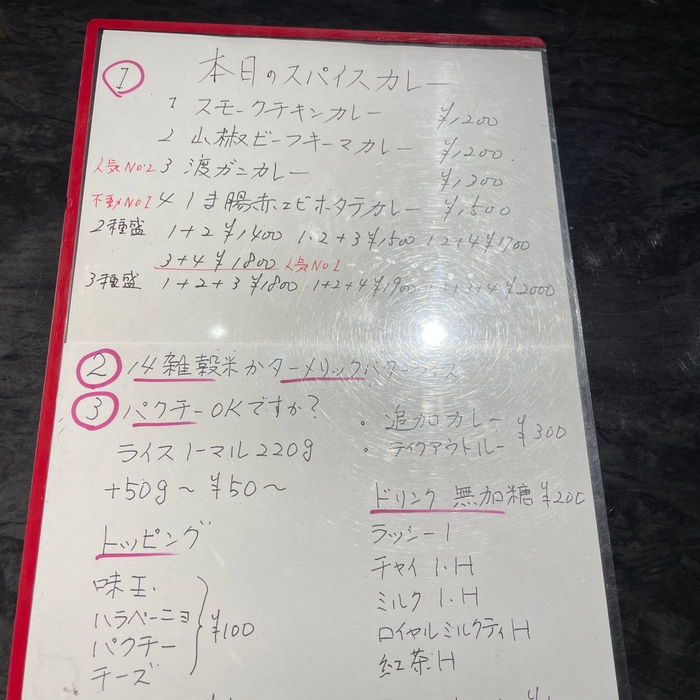 ① 本日のスパイスカレー
1 スモークチキンカレー ¥1200
2 山椒ビーフキーマカレー ¥1200.
人気No.2 3 渡ガニカレー ¥1300
不動No1 4 しま腸赤エビホタテカレー ¥1500
2種盛 1+2 ¥1400 1・2+3 ¥1500 1・2+4 ¥1700
3+4 ¥1800 人気No1
3種盛 1+2+3 ¥1800 1+2+4 ¥1900 +3+4 ¥2000
② 14雑穀米かターメリックバターライス
③ パクチーOKですか?
・追加カレー
・テイクアウトルー ¥300
ライスノーマル220g
+50g〜¥50〜
ドリンク 無加糖¥200
トッピング
ラッシー I
チャイ I・H
味玉・
ミルク I・H
ハラペーニョ
¥100
ロイヤルミルクティH
パクチー
紅茶・H
チーズ